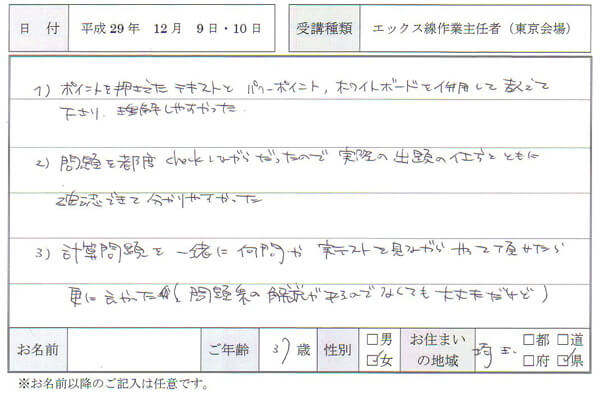 日 付 平成29年 12月 9日・10日 受講種類 エックス線作業主任者（東京会場）
1) ポイントを押さえた テキストと パワーポイント, ホワイトボードを併用して 教えて
下さり, 理解しやすかった.
2) 問題を都度 checkしながらだったので 実際の出題の仕方とともに
確認できて 分かりやすかった
3) 計算問題を 一緒に 何問か 実テストを見ながら やって頂けたら
更に良かった (問題集の解説が有るのでなくても大丈夫だけど)
お名前 ご年齢 37歳 性別 □男 ☑女 お住まいの地域 埼玉 □都 □道 □府 ☑県
※お名前以降のご記入は任意です。